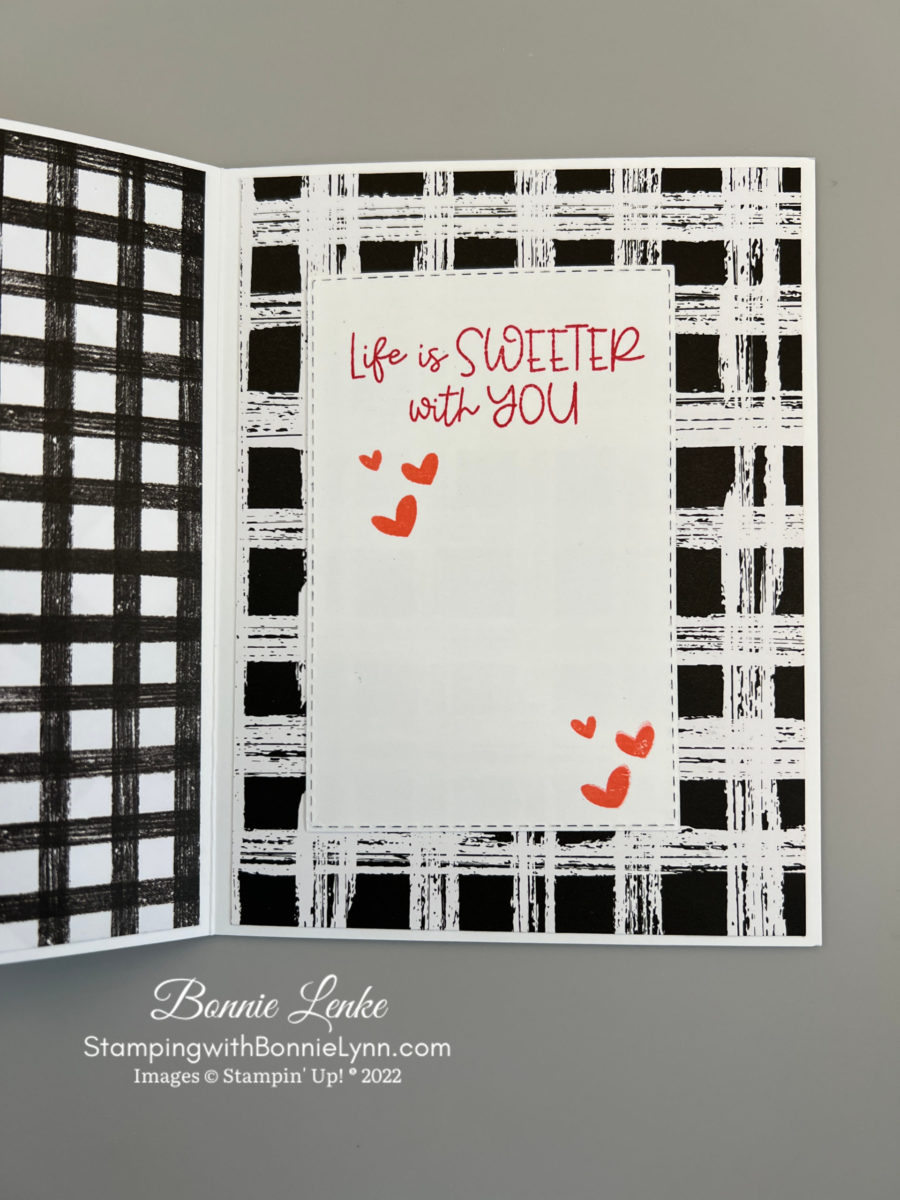 Life is SWEETER
with YOU
Bonnie Lenke
StampingwithBonnieLynn.com
Images © Stampin' Up! ® 2022